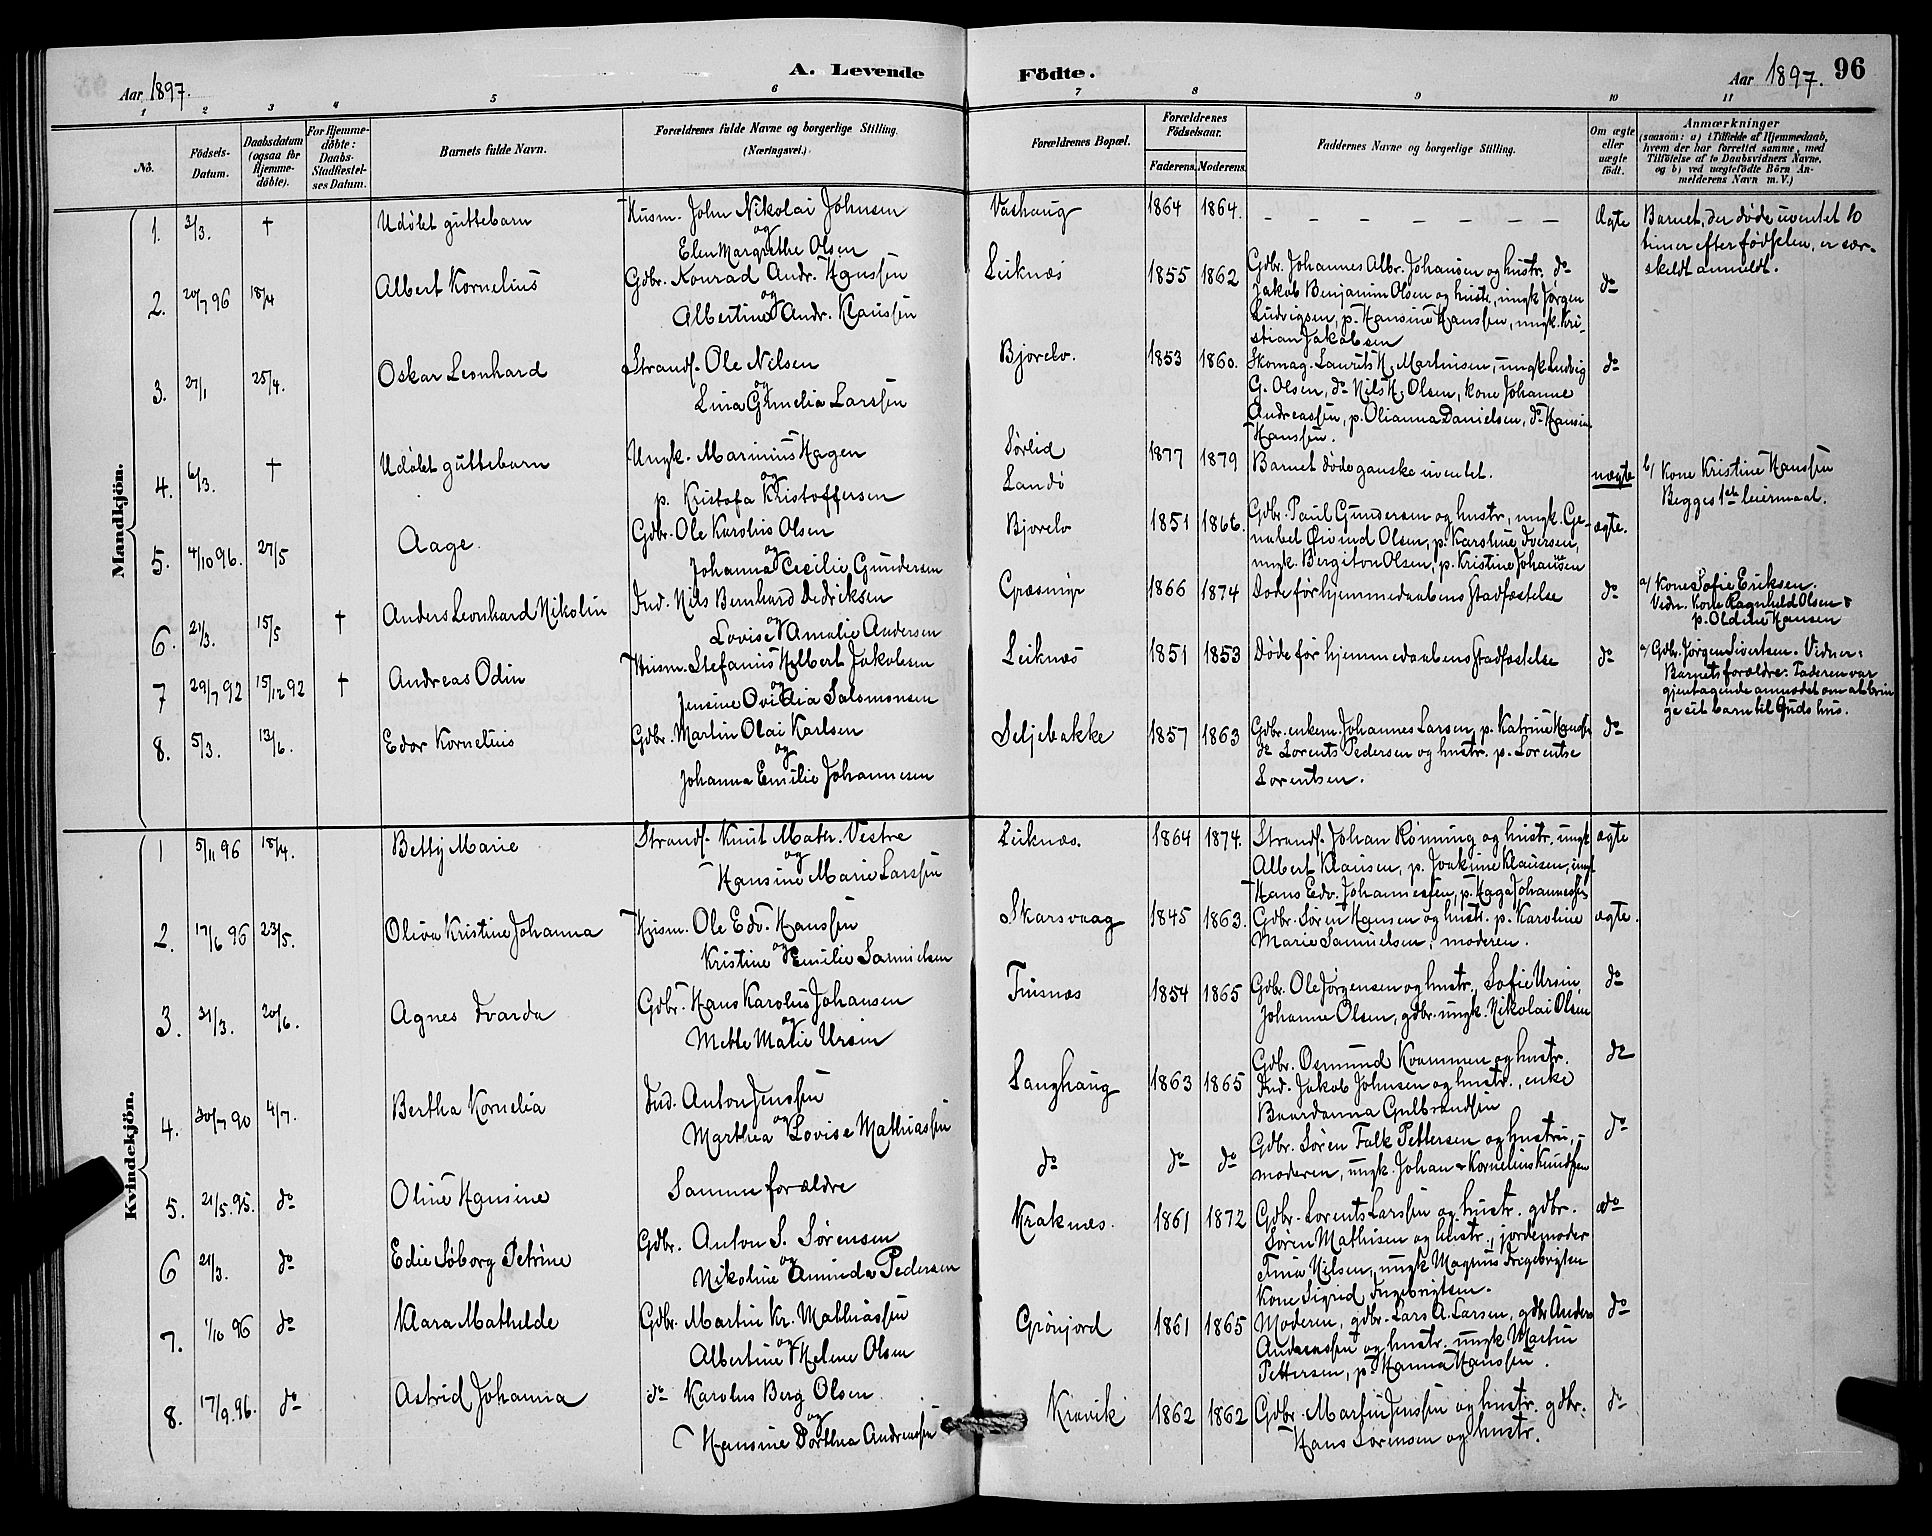 A. Levende Födte.
96
Aar 1897.
Aar 1897.
1 2 3 4 5 6 7 8 9 10 11
No.
Födsels-Datum.
Daabsdatum (ogsaa for Hjemme-döbte).
For Hjemme-döbte: Daabs-Stadfæstel-ses Datum.
Barnets fulde Navn.
Forældrenes fulde Navne og borgerlige Stilling. (Næringsvei.)
Forældrenes Bopæl.
Forældrenes Födselsaar.
Faderens. Moderens.
Faddernes Navne og borgerlige Stilling.
Om ægte eller uægte födt.
Anmærkninger
(saasom: a) i Tilfælde af Hjemmedaab, hvem der har forrettet samme, med Tilföielse af to Daabsvidners Navne, og b) ved uægtefödte Börn An-melderens Navn m. V.)
Mandkjön.
1. 2/3. † Udøbt guttebarn Husm. John Nikolai Johnsen og Elen Margrethe Olsen 1864 1864. – – – – – – – Ægte Barnet, der døde uventet 10
timer efter fødselen, er sær-
skildt anmeldt.
2. 20/7 96 18/4 Albert Kornelius Gdbr. Konrad Andr. Hanssen og Albertine Andr. Klaussen Leiknæs 1855 1862 Gdbr. Johannes Albr. Johansen og hustr. do
Jakob Benjamin Olsen og hustr., ungk. Jørgen
Ludvigsen, p. Hansine Hanssen, ungk. Kri-
stian Jakobsen do
3. 27/1 25/4. Oskar Leonhard Strands. Ole Nilsen og Lina Larssen Bjorelv. 1853 1860. Skomag. Laurits M. Martinsen, ungk Ludvig
G. Olsen, do Nils M. Olsen, kone Johanne
Andreassen, p. Olianna Danielsen, do Hansine
Hanssen. do
4. 6/3. † Udøbt guttebarn Ungk. Marinius Hagen og p. Kristofa Kristoffersen Sørlid
Landø 1877 1879 Barnet døde ganske uventet. uægte b/ Kone Kristine Hanssen
Begges 1ste leiermaal.
5. 4/10 96. 27/5 Aage. Gdbr. Ole Karolius Olsen og Johanna Cecilie Gundersen Bjorelv 1851 1866. Gdbr. Paul Gundersen og hustr., ungk. Ge-
nabel Øivind Olsen, p. Karoline Iversen,
ungk. Bergiton Olsen, p. Kristine Johansen ægte.
6. 21/3. 15/5 † Anders Leonhard Nikolin Ind. Nils Bernhard Dedriksen og Lovise Amalie Andersen Græsmyr 1866 1874 Døde før hjemmedaabens stadfæstelse do a/ Kone Sofie Eriksen.
Vidn. Kone Ragnhild Olsen &
p. Oldine Hansen
7 29/7 92 15/12 92 † Andreas Odin Husm. Stefanus Albert Jakobsen og Jensine Ovidia Salomonsen Leiknæs 1851 1853 Døde før hjemmedaabens stadfæstelse do a/ Gdbr. Jørgen Sivertsen. Vidner:
Barnets forældre. Faderen var
gjentagende anmodet om at brin-
ge sit barn til Guds hus.
8. 5/3. 13/6. Edor Kornelius Gdbr. Martin Olai Karlsen og Johanna Emilie Johannesen Seljebakke 1857 1863 Gdbr. enkem. Johannes Larsen, p. Katrine Hansen
do Lorents Pedersen og hustr. p. Lorentse
Lorentsen. do
Kvindekjön.
1 5/11 96 18/4. Betty Marie Strands. Knut Math. Vestre og Hansine Marie Larssen Leiknæs. 1864 1874. Strands. Johan Rønning og hustr. ungk
Albert Klausen, p. Joakime Klausen, ungk
Hans Edv. Johannessen, p. Haga Johannessen ægte
2. 17/6 96 23/5. Oliva Kristine Johanna Husm. Ole Edv. Hanssen og Kristine Emilie Samuelsen Skarsvaag 1845 1863. Gdbr. Søren Hansen og hustr. p. Karoline
Marie Samuelsen, moderen. ægte.
3. 31/3. 20/6. Agnes Ivarda Gdbr. Hans Karolus Johansen og Mette Marie Ursin Finsnæs 1854 1865 Gdbr. Ole Jørgensen og hustr., Sofie Ursin,
Johanne Olsen, gdbr. ungk. Nikolai Olsen do
4. 30/7 90 4/7. Bertha Kornelia Ind. Anton Jenssen og Marthea Lovise Mathiassen Langhaug 1863 1865 Gdbr. Osmund Kvammen og hustr.
Ind. Jakob Johnsen og hustr., enke
Baardanna Gulbrandsen do
5. 21/5. 95. do Oline Hansine Samme forældre do do do Gdbr. Søren Falk Pettersen og hustru,
moderen, ungk. Johan & Kornelius Knudsen do
6 21/3. do Edie Søborg Petrine Gdbr. Anton S. Sørensen og Nikoline Aminda Pedersen Kraknes. 1861 1872 Gdbr. Lorents Larssen og hustr. gdbr.
Søren Mathisen og hustr., jordemoder
Tina Nilsen, ungk Magnus Ingebrigtsen
Kone Sigrid Ingebrigtsen. do
7. 1/10 96 do Klara Mathilde Gdbr. Martin Kr. Mathiassen og Albertine Helene Olsen Grønjord 1861 1865 Moderen, gdbr. Lars A. Larsen, gdbr. Anders
Andreassen og hustr. ungk Martin
Pettersen, p. Hanna Hanssen. do
8. 17/9. 96. do Astrid Johanna do Karolus Berg Olsen og Hansine Dorthea Andreassen Kravik 1862 1862 Gdbr. Martin Jenssen og hustr. gdbr.
Hans Sørensen og hustr. do